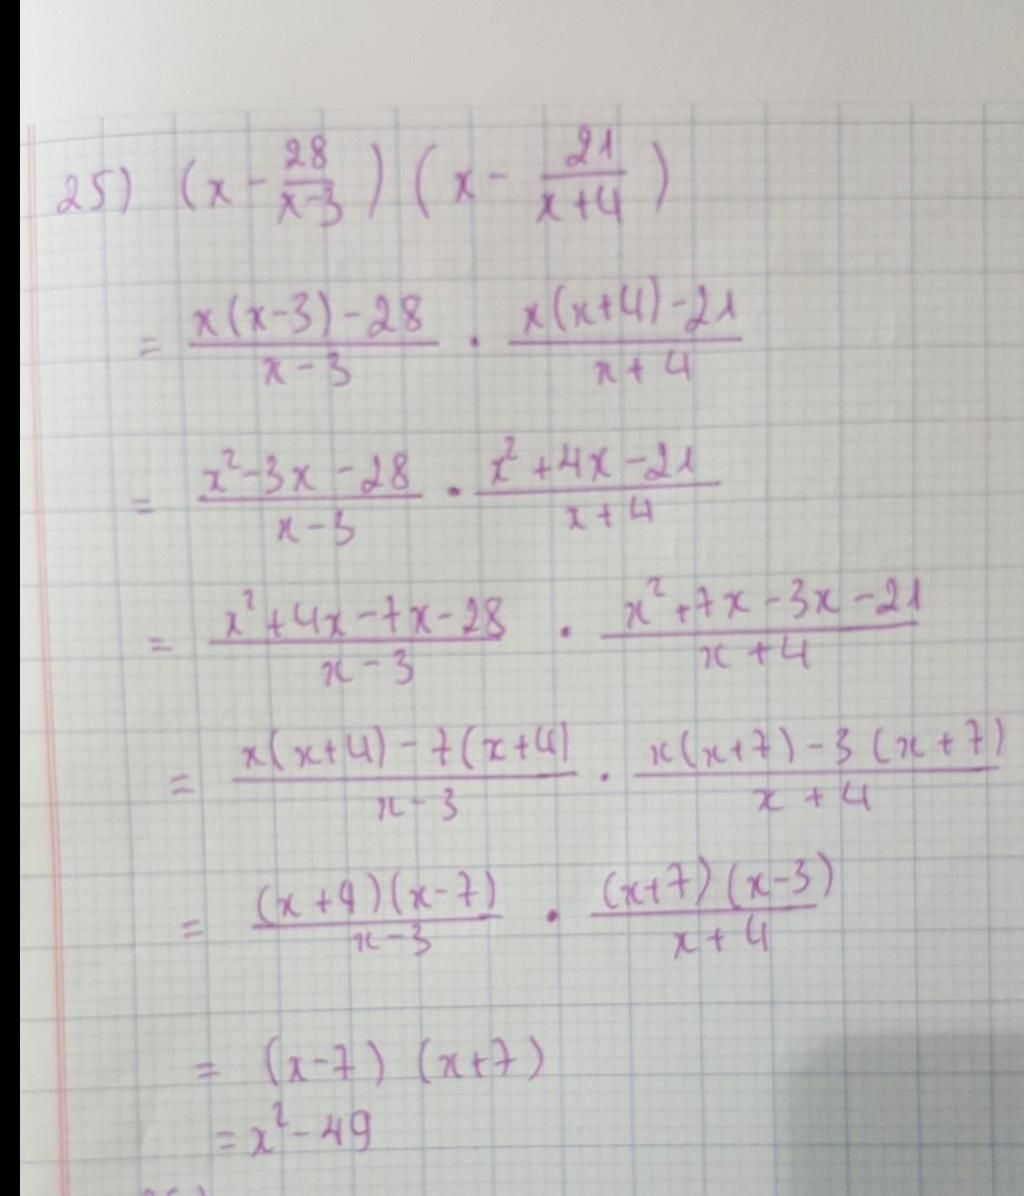 25) (x - 28/(x-3)) (x - 21/(x+4))
= (x(x-3)-28)/(x-3) · (x(x+4)-21)/(x+4)
= (x²-3x-28)/(x-3) · (x²+4x-21)/(x+4)
= (x²+4x-7x-28)/(x-3) · (x²+7x-3x-21)/(x+4)
= (x(x+4)-7(x+4))/(x-3) · (x(x+7)-3(x+7))/(x+4)
= ((x+4)(x-7))/(x-3) · ((x+7)(x-3))/(x+4)
= (x-7) (x+7)
= x²-49